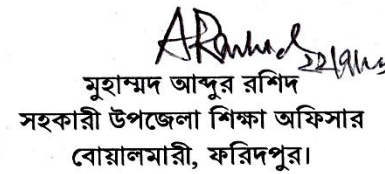 ARashid
মুহাম্মদ আব্দুর রশিদ
সহকারী উপজেলা শিক্ষা অফিসার
বোয়ালমারী, ফরিদপুর।